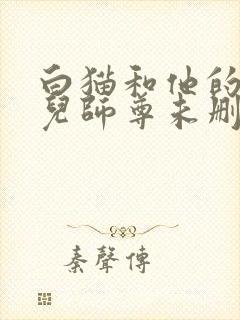 白猫和他的
兒師尊未刪
秦聲傳